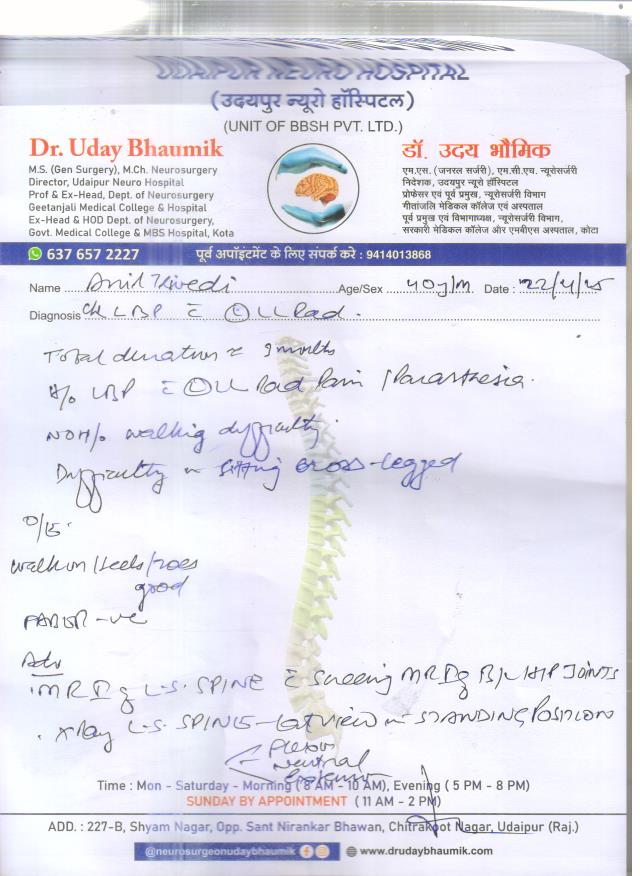 UDAIPUR NEURO HOSPITAL
(उदयपुर न्यूरो हॉस्पिटल)
(UNIT OF BBSH PVT. LTD.)
Dr. Uday Bhaumik
M.S. (Gen Surgery), M.Ch. Neurosurgery
Director, Udaipur Neuro Hospital
Prof & Ex-Head, Dept. of Neurosurgery
Geetanjali Medical College & Hospital
Ex-Head & HOD Dept. of Neurosurgery,
Govt. Medical College & MBS Hospital, Kota
डॉ. उदय भौमिक
एम.एस. (जनरल सर्जरी), एम.सी.एच. न्यूरोसर्जरी
निदेशक, उदयपुर न्यूरो हॉस्पिटल
प्रोफेसर एवं पूर्व प्रमुख, न्यूरोसर्जरी विभाग
गीतांजलि मेडिकल कॉलेज एवं अस्पताल
पूर्व प्रमुख एवं विभागाध्यक्ष, न्यूरोसर्जरी विभाग,
सरकारी मेडिकल कॉलेज और एमबीएस अस्पताल, कोटा
637 657 2227 पूर्व अपॉइंटमेंट के लिए संपर्क करे : 9414013868
Name Anil Trivedi Age/Sex 40y/m Date : 22/4/25
Diagnosis Ch LBP c LL Rad.
Total duration 9 months
H/o LBP c LL Rad Pain / Parasthesia.
NO H/o walking difficulty.
Difficulty in sitting cross-legged
O/E.
walk on Heels/Toes
good
FABER -ve
Adv
. MRI of L.S. SPINE c Screening MRI of B/L HIP JOINTS
. X Ray L.S. SPINE - Lat view in STANDING POSITION
Flexion
Neutral
Extension
Time : Mon - Saturday - Morning ( 8 AM - 10 AM), Evening ( 5 PM - 8 PM)
SUNDAY BY APPOINTMENT ( 11 AM - 2 PM)
ADD. : 227-B, Shyam Nagar, Opp. Sant Nirankar Bhawan, Chitrakoot Nagar, Udaipur (Raj.)
@neurosurgeonudaybhaumik www.drudaybhaumik.com